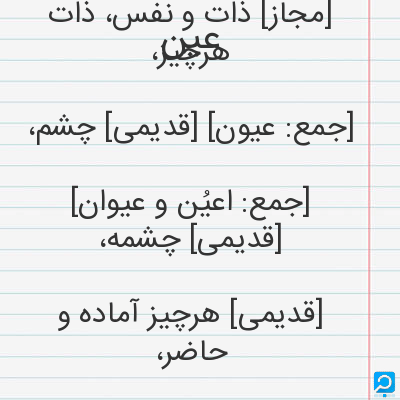 [مجاز] ذات و نفس، ذات
عین
هرچیز،
[جمع: عیون] [قدیمی] چشم،
[جمع: اعیُن و عیوان]
[قدیمی] چشمه،
[قدیمی] هرچیز آماده و
حاضر،